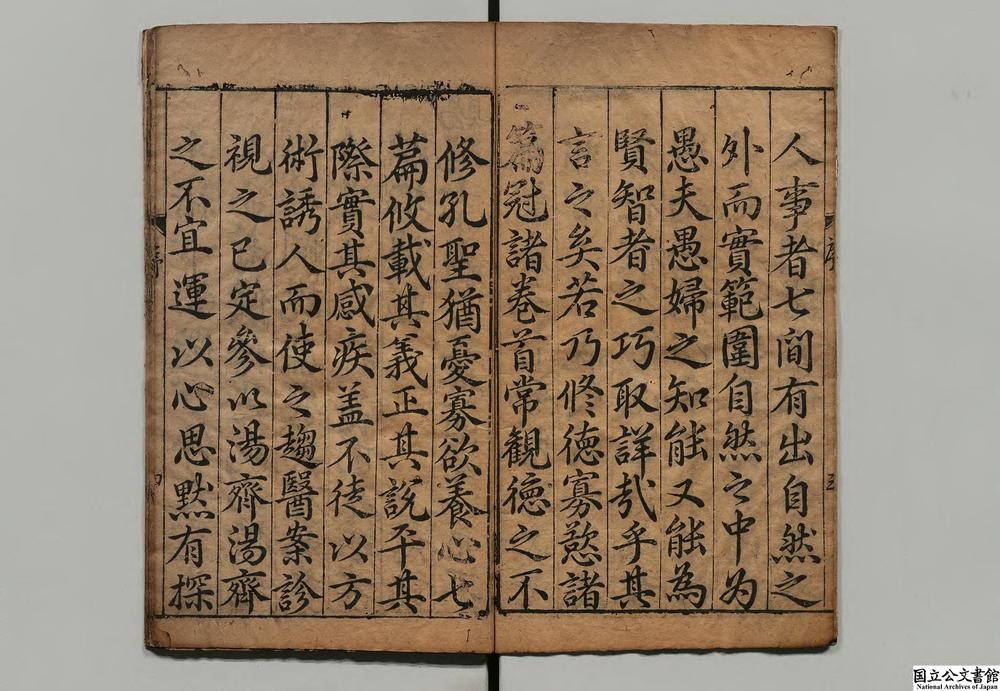 人事者七間有出自然之
外而實範圍自然之中为
愚夫愚婦之知能又能為
賢智者之巧取詳哉乎其
言之矣若乃修德寡慾諸
篇冠諸卷首常観德之不
修孔聖猶憂寡欲養心七
篇攸載其義正其説平其
際實其感疾盖不徒以方
術誘人而使之趨醫案診
視之已定參以湯齊湯齊
之不宜運以心思黙有探
序
三
四
国立公文書館
National Archives of Japan